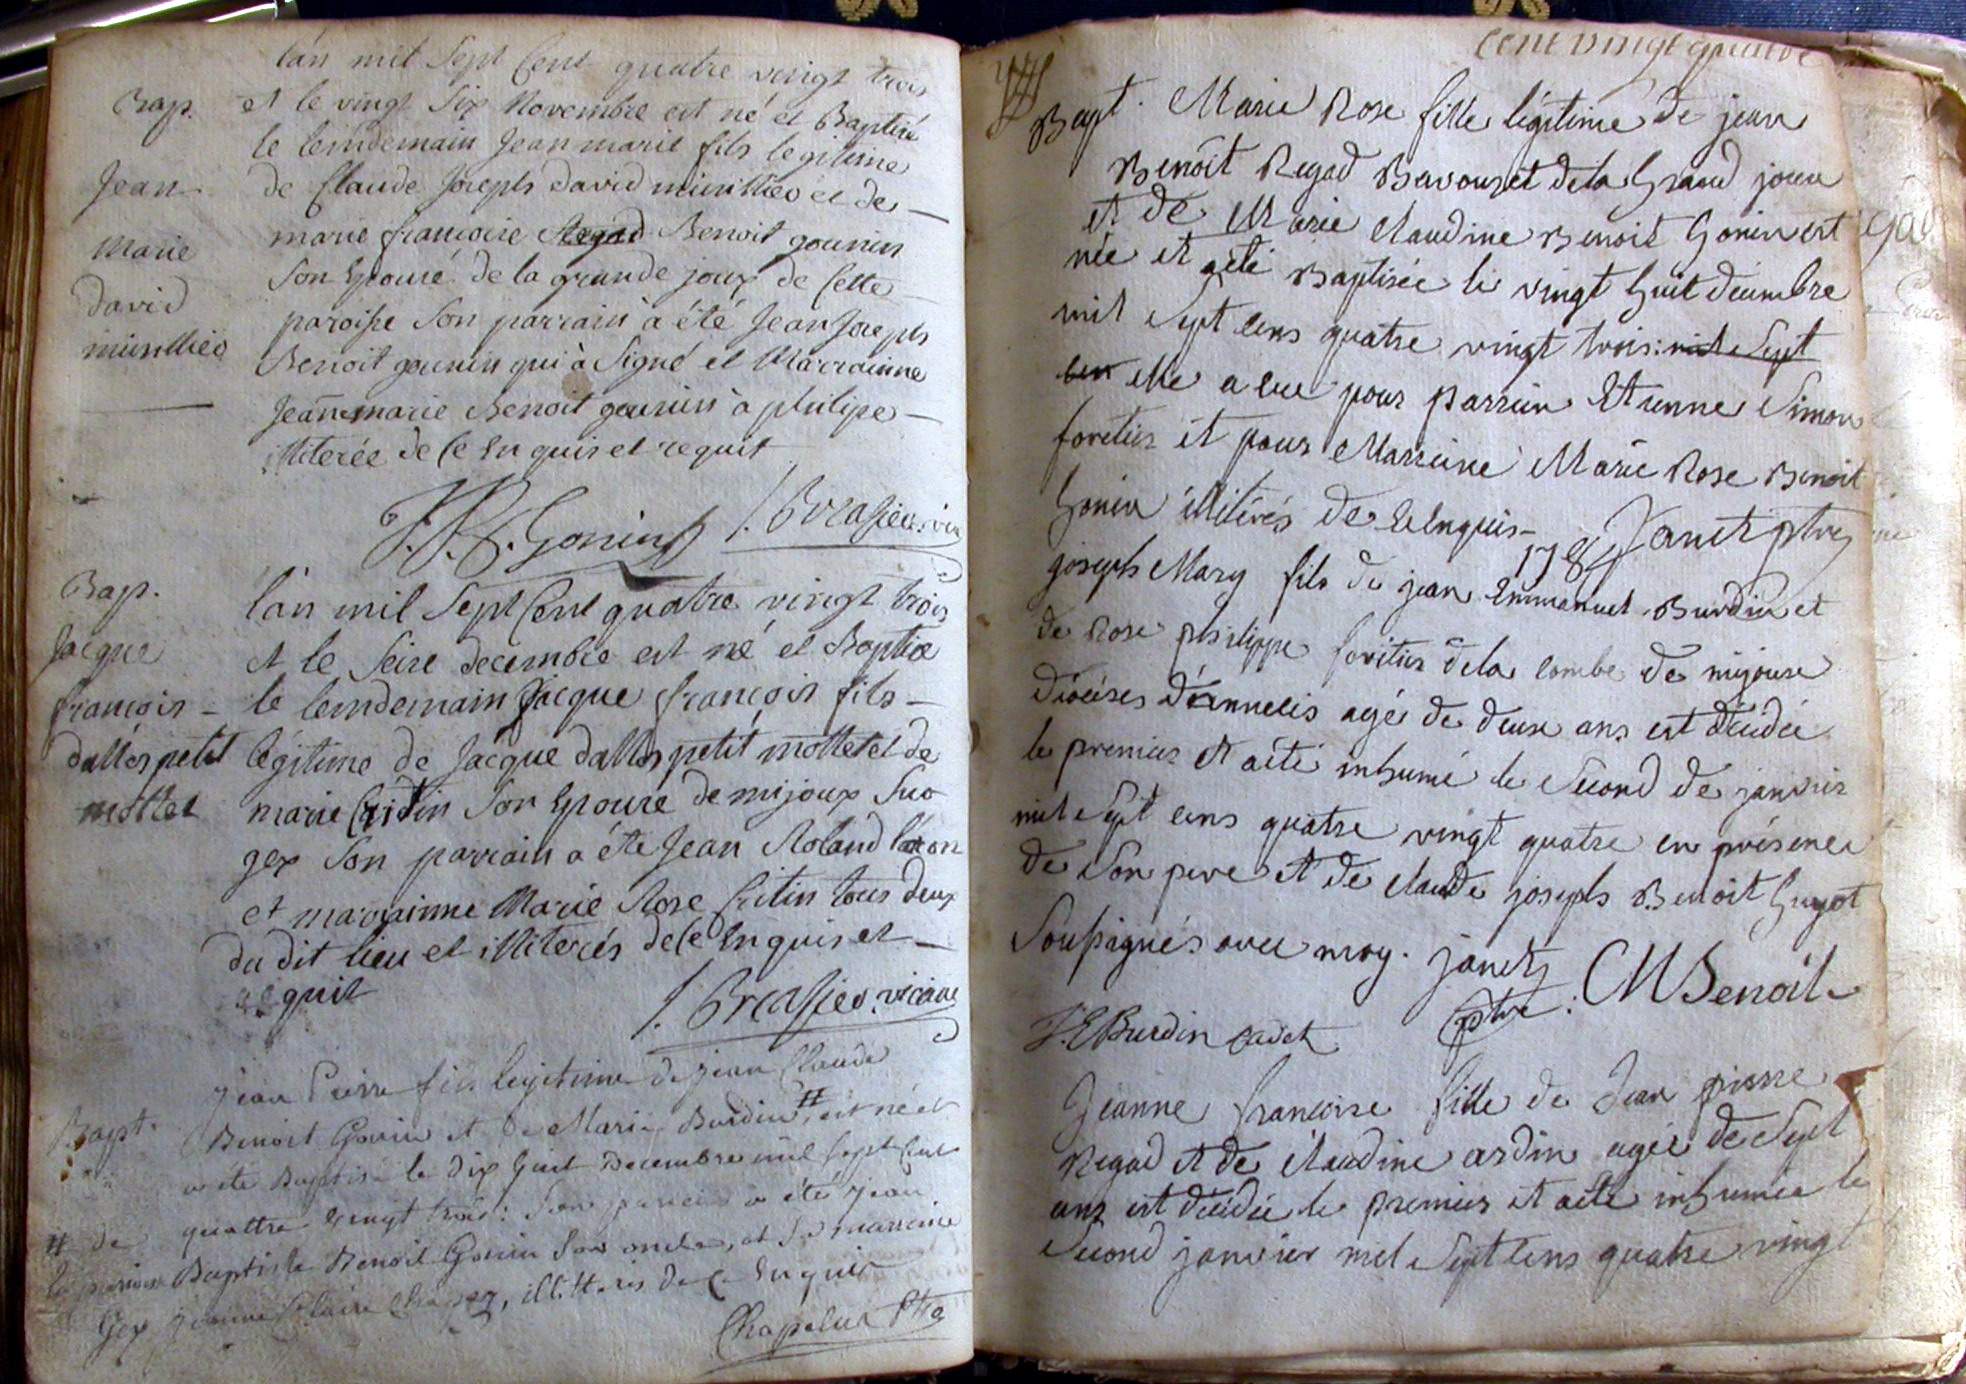 l'an mil Sept Cent quatre vingt trois
Bap. et le vingt Six Novembre est né et Baptisé
le lendemain Jean marie fils legitime
Jean de Claude Joseph david
marie francoise Regad Benoit gounin
Marie Son Epouse de la grande joux de Cette
david paroisse Son parrain à été Jean Joseph
Benoit gounin qui à Signé et Marrainne
Jeanne marie Benoit gounin à philipe
illiterée de Ce Enquis et requit
J. J. B. Gonin
Bap. l'an mil Sept Cent quatre vingt trois
Jacque et le Seise decembre est né et Baptisé
françois le lendemain Jacque françois fils
dallos petit légitime de Jacque dallos petit mottet et de
mottet marie Son Epouse de mijoux Sur
gex Son parrain a éte Jean Roland
et marrainne Marie Rose tous deux
du dit lieu et illiterés de Ce Enquis et
requit
vicaire
Jean Pierre fils legitime de Jean Claude
Bapt. Benoit Gonin et de Marie Burdin #, est né et
a été Baptisé le dix huit Decembre mil Sept Cent
quattre vingt trois : Son parrain a été Jean
# de Baptiste Benoit Gonin Son oncle, et Sa marraine
Gex Jeanne Claire, illitteris de Ce Enquis
Chapelut Ptre
Cent vingt quatre
Bapt. Marie Rose fille légitime de jean
Benoît Regad Bavouzet de la Grand joux
et de Marie Claudine Benoit Gonin est
née et a été Baptisée le vingt huit decembre
mil Sept cens quatre vingt trois: mil Sept
cen elle a eue pour parrein Etienne Simon
foretier et pour Marreine Marie Rose Benoit
Gonin illiterés de ce Enquis
1784 Janet ptre
joseph Mary fils de jean Emmanuel Burdin et
de Rose philippe foretier de la combe de mijoux
diocèses d'annecis agé de deux ans est décédé
le premier et a été inhumé le Second de janvier
mil Sept cens quatre vingt quatre en présence
de Son pere et de claude joseph Benoit Guyot
Soussignés avec moy. janet
ptre. CJ Benoit
J. E Burdin cadet
Jeanne francoise fille de Jean pierre
Regad et de Claudine ardin agée de Sept
ans est décédée le premier et a été inhumée le
Second janvier mil Sept cens quatre vingt